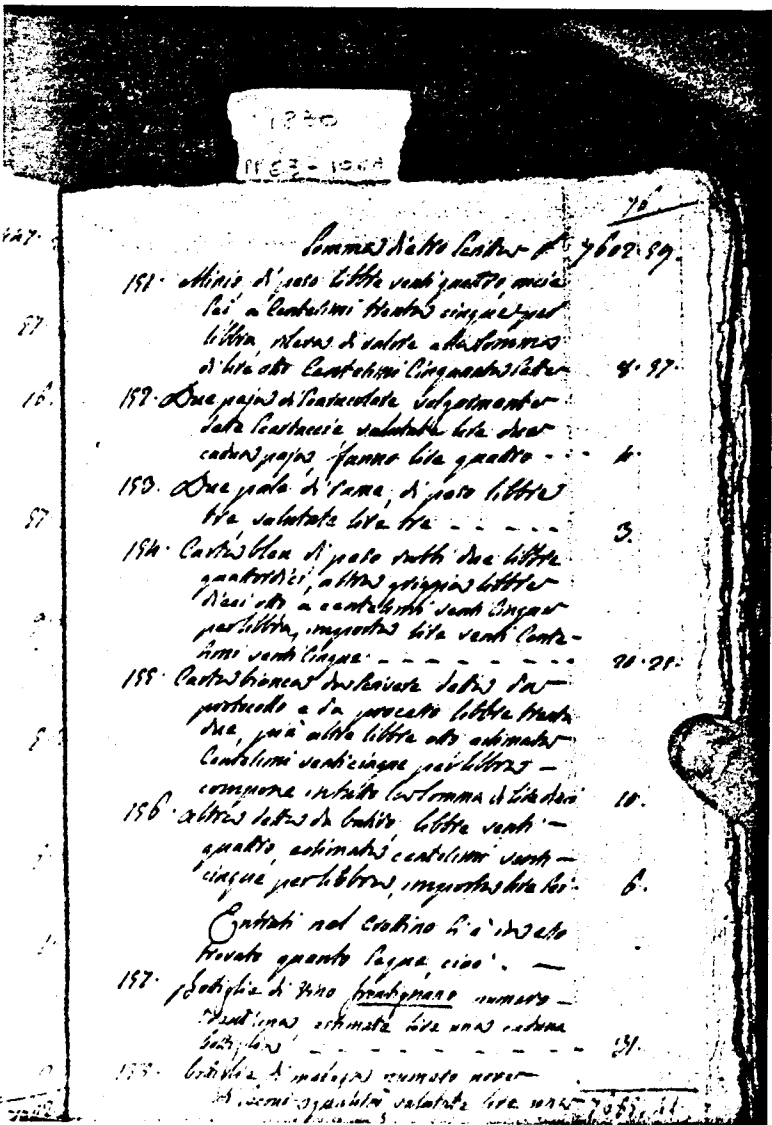 1830
76.
Somma dietro scritta £ 7602.59.
151. Minio di peso libbre venti quattro, oncie
sei a Centesimi trenta cinque per
libbra rileva di valore alla Somma
di lire otto Centesimi Cinquanta sette 8.57.
152. Due paja di vulgarmente
dette valutate lire due
cadun pajo, fanno lire quattro - - - 4.
153. Due pale di rame, di peso libbre
tre valutate lire tre - - - - - 3.
154. Carta bleu di peso rubbi due libbre
quattordici, altra griggia libbre
dieci otto a centesimi venti Cinque
per libbra, importa lire venti Cente-
simi venti Cinque - - - - - - - 20.25.
155. Carta bianca da scrivere detta da
protocollo e da processo libbre trenta
due, più altre libbre otto estimata
Centesimi venticinque per libbra -
compone in tutto la Somma di lire dieci 10.
156. Altra detta da libbre venti -
quattro, estimata centesimi venti -
cinque per libbra, importa lire sei - 6.
Entrati nel Crottino si è in esso
trovato quanto segue, cioè. -
157. Bottiglie di vino frontignano numero -
trent'una estimate lire una caduna
bottiglia - - - - - - - 31.
158. Bottiglie di malaga numero nove -
valutate lire una
57
16.
57